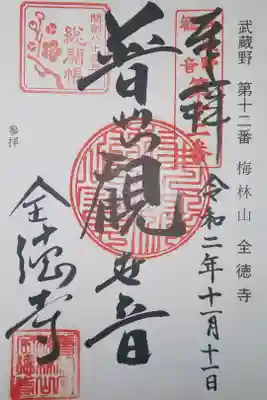 武蔵野 第十二番 梅林山 全徳寺
奉拝
第十二番
令和二年十一月十一日
観世音
開創八十周年
総開帳
参拝
全徳寺